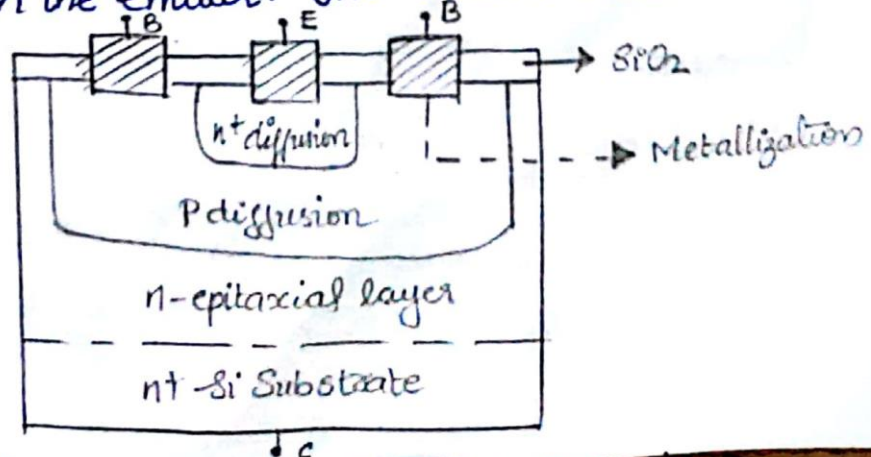 n the
B E B
SiO2
n+ diffusion
Metallization
P diffusion
n-epitaxial layer
n+ -Si Substrate
C